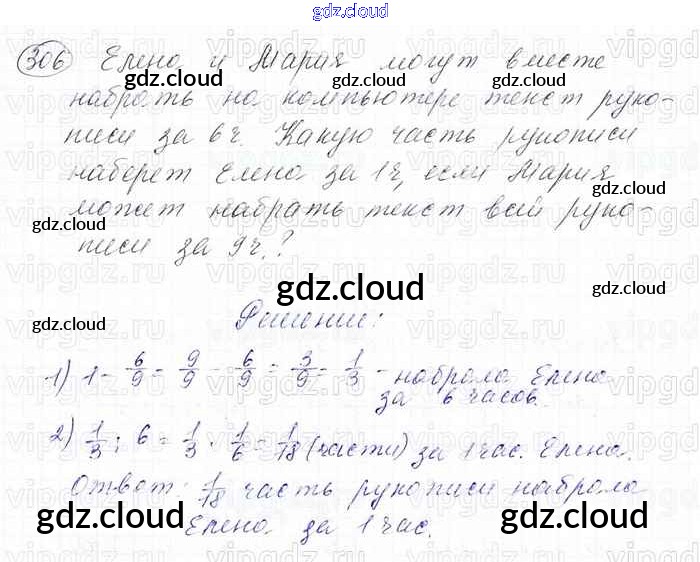 gdz.cloud
306 Елена и Мария могут вместе
набрать на компьютере текст руко-
писи за 6 ч. Какую часть рукописи
наберет Елена за 1 ч, если Мария
может набрать текст всей руко-
писи за 9 ч.?
Решение:
1) 1 - 6/9 = 9/9 - 6/9 = 3/9 = 1/3 - набрала Елена
за 6 часов.
2) 1/3 : 6 = 1/3 · 1/6 = 1/18 (части) за 1 час. Елена.
Ответ: 1/18 часть рукописи набрала
Елена за 1 час.
gdz.cloud
gdz.cloud
gdz.cloud
gdz.cloud
gdz.cloud
gdz.cloud
gdz.cloud
gdz.cloud
gdz.cloud
gdz.cloud
gdz.cloud
gdz.cloud